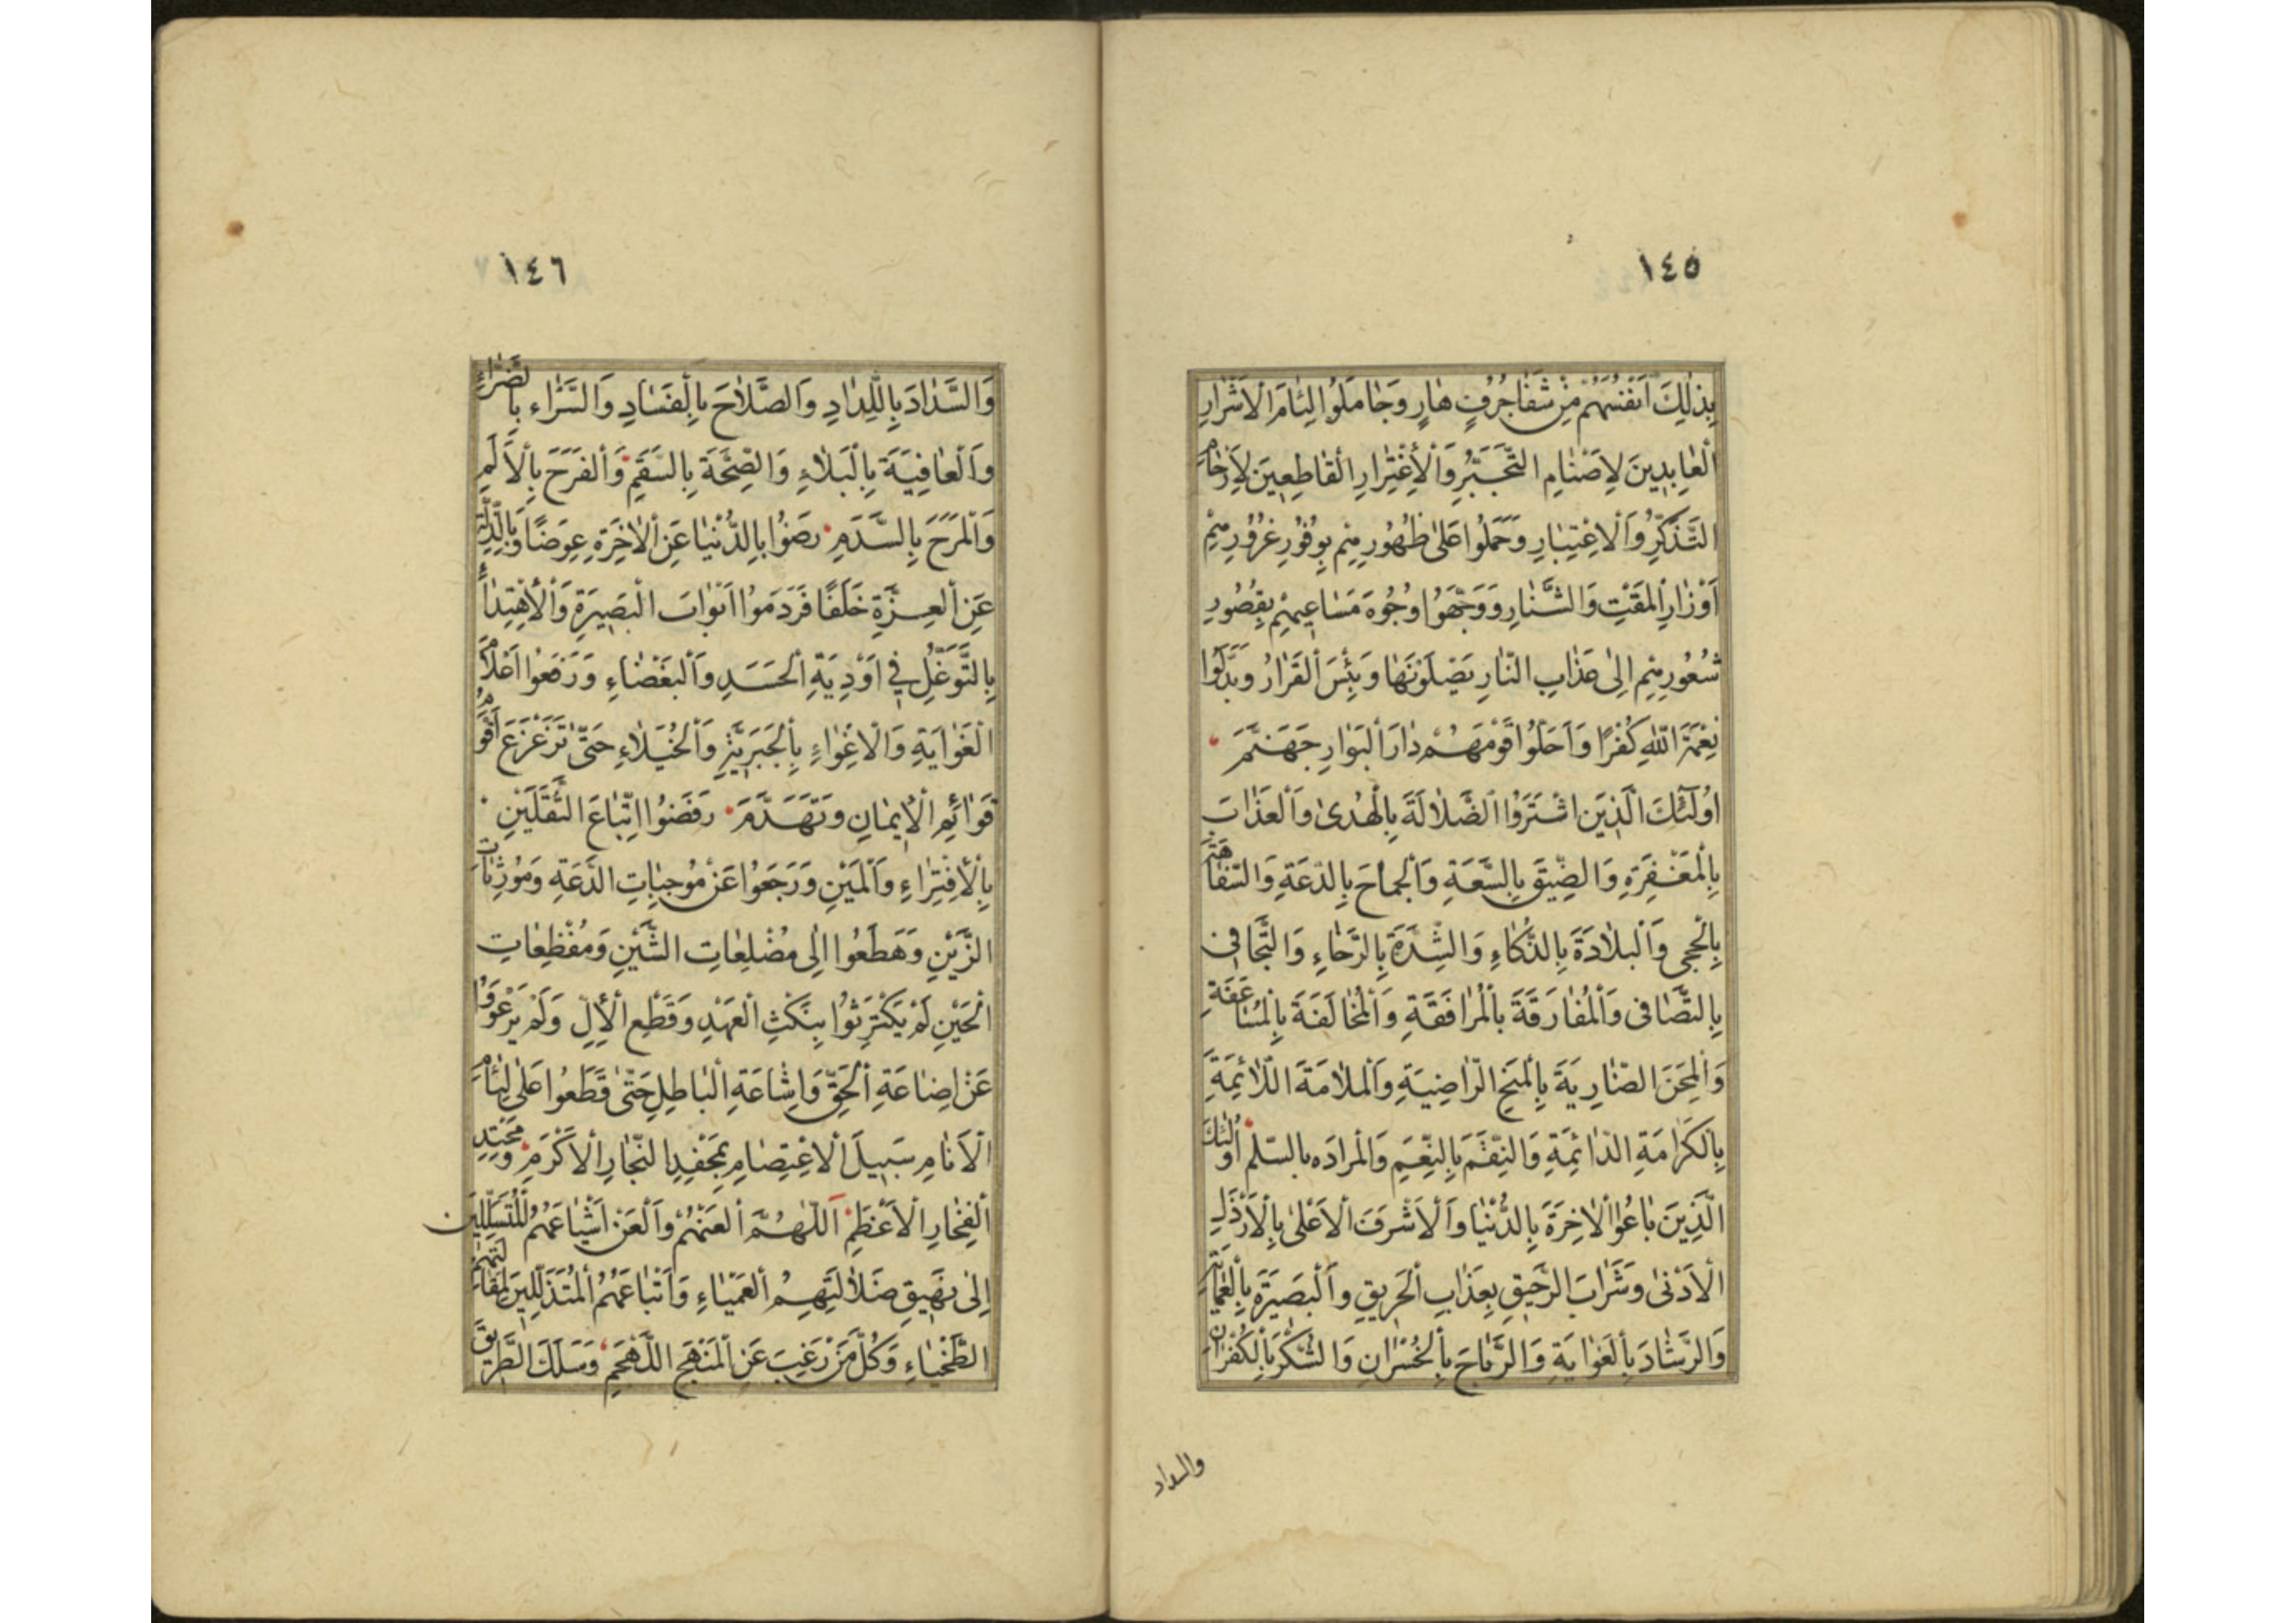 ١٤٥
بِذٰلِكَ اَنْفُسَهُمْ مِنْ شَفَا جُرُفٍ هَارٍ وَجَامَلُوا لِئَامَ الْاَشْرَارِ
الْعَابِدِينَ لِاَصْنَامِ التَّجَبُّرِ وَالْاِغْتِرَارِ الْقَاطِعِينَ لِاَرْحَامِ
التَّذَكُّرِ وَالْاِعْتِبَارِ وَحَمَلُوا عَلٰى ظُهُورِهِمْ بِوُفُورِ غُرُورِهِمْ
اَوْزَارَ الْمَقْتِ وَالشَّنَارِ وَوَجَّهُوا وُجُوهَ مَسَاعِيهِمْ بِقُصُورِ
شُعُورِهِمْ اِلٰى عَذَابِ النَّارِ يَصْلَوْنَهَا وَبِئْسَ الْقَرَارُ وَبَدَّلُوا
نِعْمَةَ اللّٰهِ كُفْرًا وَاَحَلُّوا قَوْمَهُمْ دَارَ الْبَوَارِ جَهَنَّمَ
اُولٰئِكَ الَّذِينَ اشْتَرَوُا الضَّلَالَةَ بِالْهُدٰى وَالْعَذَابَ
بِالْمَغْفِرَةِ وَالضِّيقَ بِالسَّعَةِ وَالْجِمَاحَ بِالدَّعَةِ وَالسَّفَاهَةَ
بِالْحِجٰى وَالْبَلَادَةَ بِالذَّكَاءِ وَالشِّدَّةَ بِالرَّخَاءِ وَالتَّجَافِى
بِالتَّصَافِى وَالْمُفَارَقَةَ بِالْمُرَافَقَةِ وَالْمُخَالَفَةَ
وَالْمِحَنَ الضَّارِيَةَ بِالْمِنَحِ الرَّاضِيَةِ وَالْمَلَامَةَ اللَّائِمَةَ
بِالْكَرَامَةِ الدَّائِمَةِ وَالنِّقَمَ بِالنِّعَمِ وَالْمرادَه بالسّلم اُولٰئِكَ
الَّذِينَ بَاعُوا الْاٰخِرَةَ بِالدُّنْيَا وَالْاَشْرَفَ الْاَعْلٰى بِالْاَرْذَلِ
الْاَدْنٰى وَشَرَابَ الرَّحِيقِ بِعَذَابِ الْحَرِيقِ وَالْبَصِيرَةَ بِالْعَمَايَةِ
وَالرَّشَادَ بِالْغَوَايَةِ وَالرَّبَاحَ بِالْخُسْرَانِ وَالشُّكْرَ بِالْكُفْرَانِ
والسداد
١٤٦
وَالسَّدَادَ بِاللِّدَادِ وَالصَّلَاحَ بِالْفَسَادِ وَالسَّرَّاء بِالضَّرَّاءِ
وَالْعَافِيَةَ بِالْبَلَاءِ وَالصِّحَّةَ بِالسَّقَمِ وَالْفَرَحَ بِالْاَلَمِ
وَالْمَرَحَ بِالسَّدَمِ رَضُوا بِالدُّنْيَا عَنِ الْاٰخِرَةِ عِوَضًا وَبِالذِّلَّةِ
عَنِ الْعِزَّةِ خَلَفًا فَرَدَمُوا اَبْوَابَ الْبَصِيرَةِ وَالْاِهْتِدَاءِ
بِالتَّوَغُّلِ فِى اَوْدِيَةِ الْحَسَدِ وَالْبَغْضَاءِ وَرَفَعُوا اَعْلَامَ
الْغَوَايَةِ وَالْاِغْوَاءِ بِالْجَبَرِيَّةِ وَالْخُيَلَاءِ حَتّٰى تَزَعْزَعَ اَقْوَمُ
قَوَائِمِ الْاِيمَانِ وَتَهَدَّمَ رَفَضُوا اتِّبَاعَ الثَّقَلَيْنِ
بِالْاِفْتِرَاءِ وَالْمَيْنِ وَرَجَعُوا عَنْ مُوجِبَاتِ الدَّعَةِ وَمُورِثَاتِ
الزَّيْنِ وَهَطَعُوا اِلٰى مُضْلِعَاتِ الشَّيْنِ وَمُفْظِعَاتِ
الْحَيْنِ لَمْ يَكْتَرِثُوا بِنَكْثِ الْعَهْدِ وَقَطْعِ الْاِلِّ وَلَمْ يَرْعَوُوا
عَنْ اِضَاعَةِ الْحَقِّ وَاِشَاعَةِ الْبَاطِلِ حَتّٰى قَطَعُوا عَلٰى لِئَامِ
الْاَنَامِ سَبِيلَ الْاِعْتِصَامِ بِمَحْفِدِ النِّجَارِ الْاَكْرَمِ وَمَحْتِدِ
الْفِخَارِ الْاَعْظَمِ اَللّٰهُمَّ الْعَنْهُمْ وَالْعَنْ اَشْيَاعَهُمُ الْمُتَسَلِّلِينَ
اِلٰى نَهِيقِ ضَلَالَتِهِمُ الْعَمْيَاءِ وَاَتْبَاعَهُمُ الْمُتَذَلِّلِينَ لِمَقَالَتِهِمُ
الطَّخْيَاءِ وَكُلَّ مَنْ رَغِبَ عَنِ الْمَنْهَجِ اللَّهْجَمِ وَسَلَكَ الطَّرِيقَ